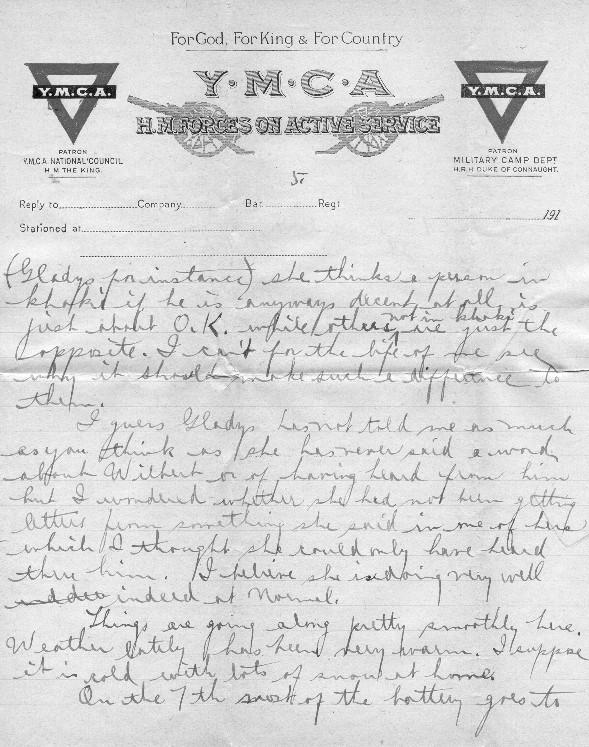 For God, For King & For Country
Y·M·C·A
H.M. FORCES ON ACTIVE SERVICE
Y.M.C.A.
PATRON
Y.M.C.A. NATIONAL COUNCIL
H.M. THE KING.
Y.M.C.A.
PATRON
MILITARY CAMP DEPT
H.R.H DUKE OF CONNAUGHT.
5.
Reply to Company Bat. Regt
Stationed at
191
(Gladys for instance) she thinks a person in
khaki if he is anyways decent at all, is
just about O.K. while others, not in khaki are just the
opposite. I can't for the life of me see
why it should make such a differance to
them.
I guess Gladys has not told me as much
as you think as she has never said a word
about Wilbert or of having heard from him
but I wondered whether she had not been getting
letters from something she said in one of hers
which I thought she could only have heard
thru him. I believe she is doing very well
indeed at Normal.
Things are going along pretty smoothly here.
Weather lately has been very warm. I suppose
it is cold with lots of snow at home.
On the 7th most of the battery goes to